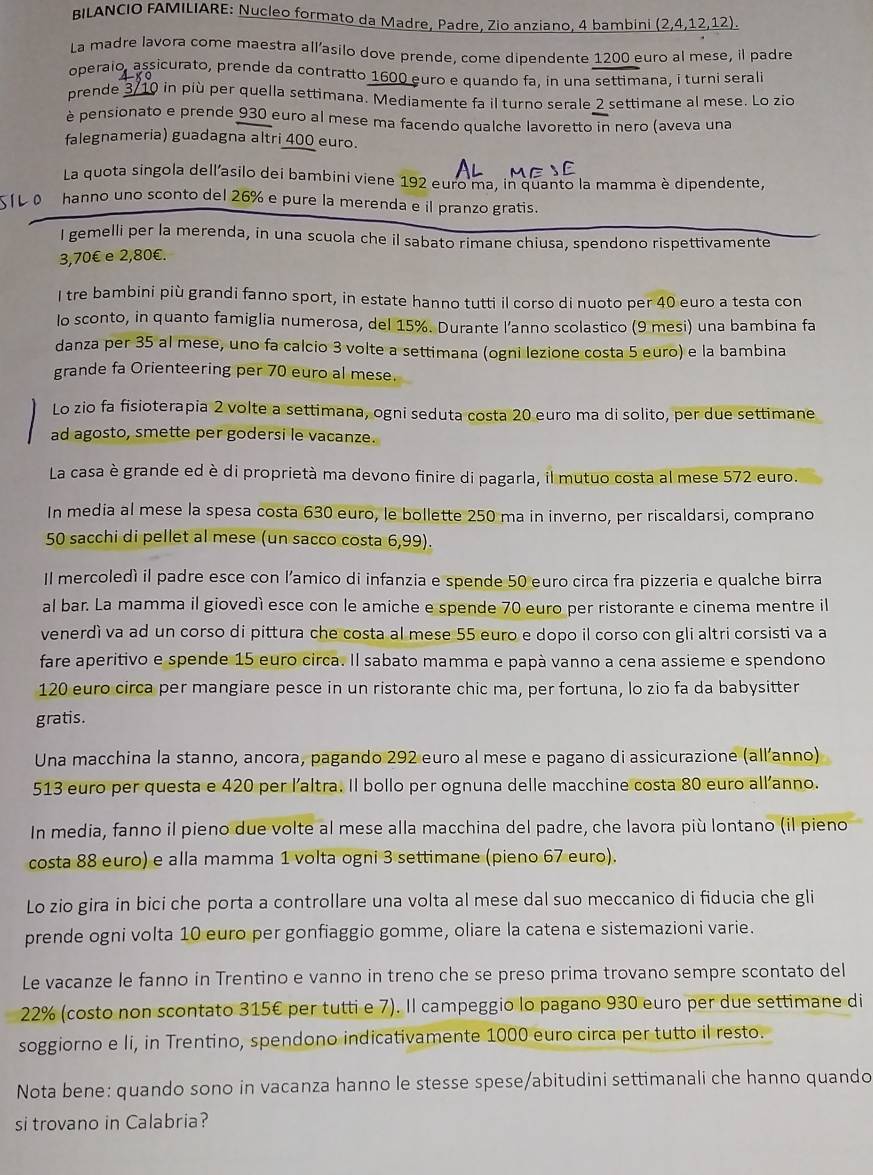 BILANCIO FAMILIARE: Nucleo formato da Madre, Padre, Zio anziano, 4 bambini (2,4,12,12).
La madre lavora come maestra all'asilo dove prende, come dipendente 1200 euro al mese, il padre
operaio, assicurato, prende da contratto 1600 euro e quando fa, in una settimana, i turni serali
480
prende 3/10 in più per quella settimana. Mediamente fa il turno serale 2 settimane al mese. Lo zio
è pensionato e prende 930 euro al mese ma facendo qualche lavoretto in nero (aveva una
falegnameria) guadagna altri 400 euro.
AL MESE
La quota singola dell'asilo dei bambini viene 192 euro ma, in quanto la mamma è dipendente,
SILO hanno uno sconto del 26% e pure la merenda e il pranzo gratis.
I gemelli per la merenda, in una scuola che il sabato rimane chiusa, spendono rispettivamente
3,70€ e 2,80€.
I tre bambini più grandi fanno sport, in estate hanno tutti il corso di nuoto per 40 euro a testa con
lo sconto, in quanto famiglia numerosa, del 15%. Durante l'anno scolastico (9 mesi) una bambina fa
danza per 35 al mese, uno fa calcio 3 volte a settimana (ogni lezione costa 5 euro) e la bambina
grande fa Orienteering per 70 euro al mese.
Lo zio fa fisioterapia 2 volte a settimana, ogni seduta costa 20 euro ma di solito, per due settimane
ad agosto, smette per godersi le vacanze.
La casa è grande ed è di proprietà ma devono finire di pagarla, il mutuo costa al mese 572 euro.
In media al mese la spesa costa 630 euro, le bollette 250 ma in inverno, per riscaldarsi, comprano
50 sacchi di pellet al mese (un sacco costa 6,99).
Il mercoledì il padre esce con l'amico di infanzia e spende 50 euro circa fra pizzeria e qualche birra
al bar. La mamma il giovedì esce con le amiche e spende 70 euro per ristorante e cinema mentre il
venerdì va ad un corso di pittura che costa al mese 55 euro e dopo il corso con gli altri corsisti va a
fare aperitivo e spende 15 euro circa. Il sabato mamma e papà vanno a cena assieme e spendono
120 euro circa per mangiare pesce in un ristorante chic ma, per fortuna, lo zio fa da babysitter
gratis.
Una macchina la stanno, ancora, pagando 292 euro al mese e pagano di assicurazione (all'anno)
513 euro per questa e 420 per l'altra. Il bollo per ognuna delle macchine costa 80 euro all'anno.
In media, fanno il pieno due volte al mese alla macchina del padre, che lavora più lontano (il pieno
costa 88 euro) e alla mamma 1 volta ogni 3 settimane (pieno 67 euro).
Lo zio gira in bici che porta a controllare una volta al mese dal suo meccanico di fiducia che gli
prende ogni volta 10 euro per gonfiaggio gomme, oliare la catena e sistemazioni varie.
Le vacanze le fanno in Trentino e vanno in treno che se preso prima trovano sempre scontato del
22% (costo non scontato 315€ per tutti e 7). Il campeggio lo pagano 930 euro per due settimane di
soggiorno e li, in Trentino, spendono indicativamente 1000 euro circa per tutto il resto.
Nota bene: quando sono in vacanza hanno le stesse spese/abitudini settimanali che hanno quando
si trovano in Calabria?